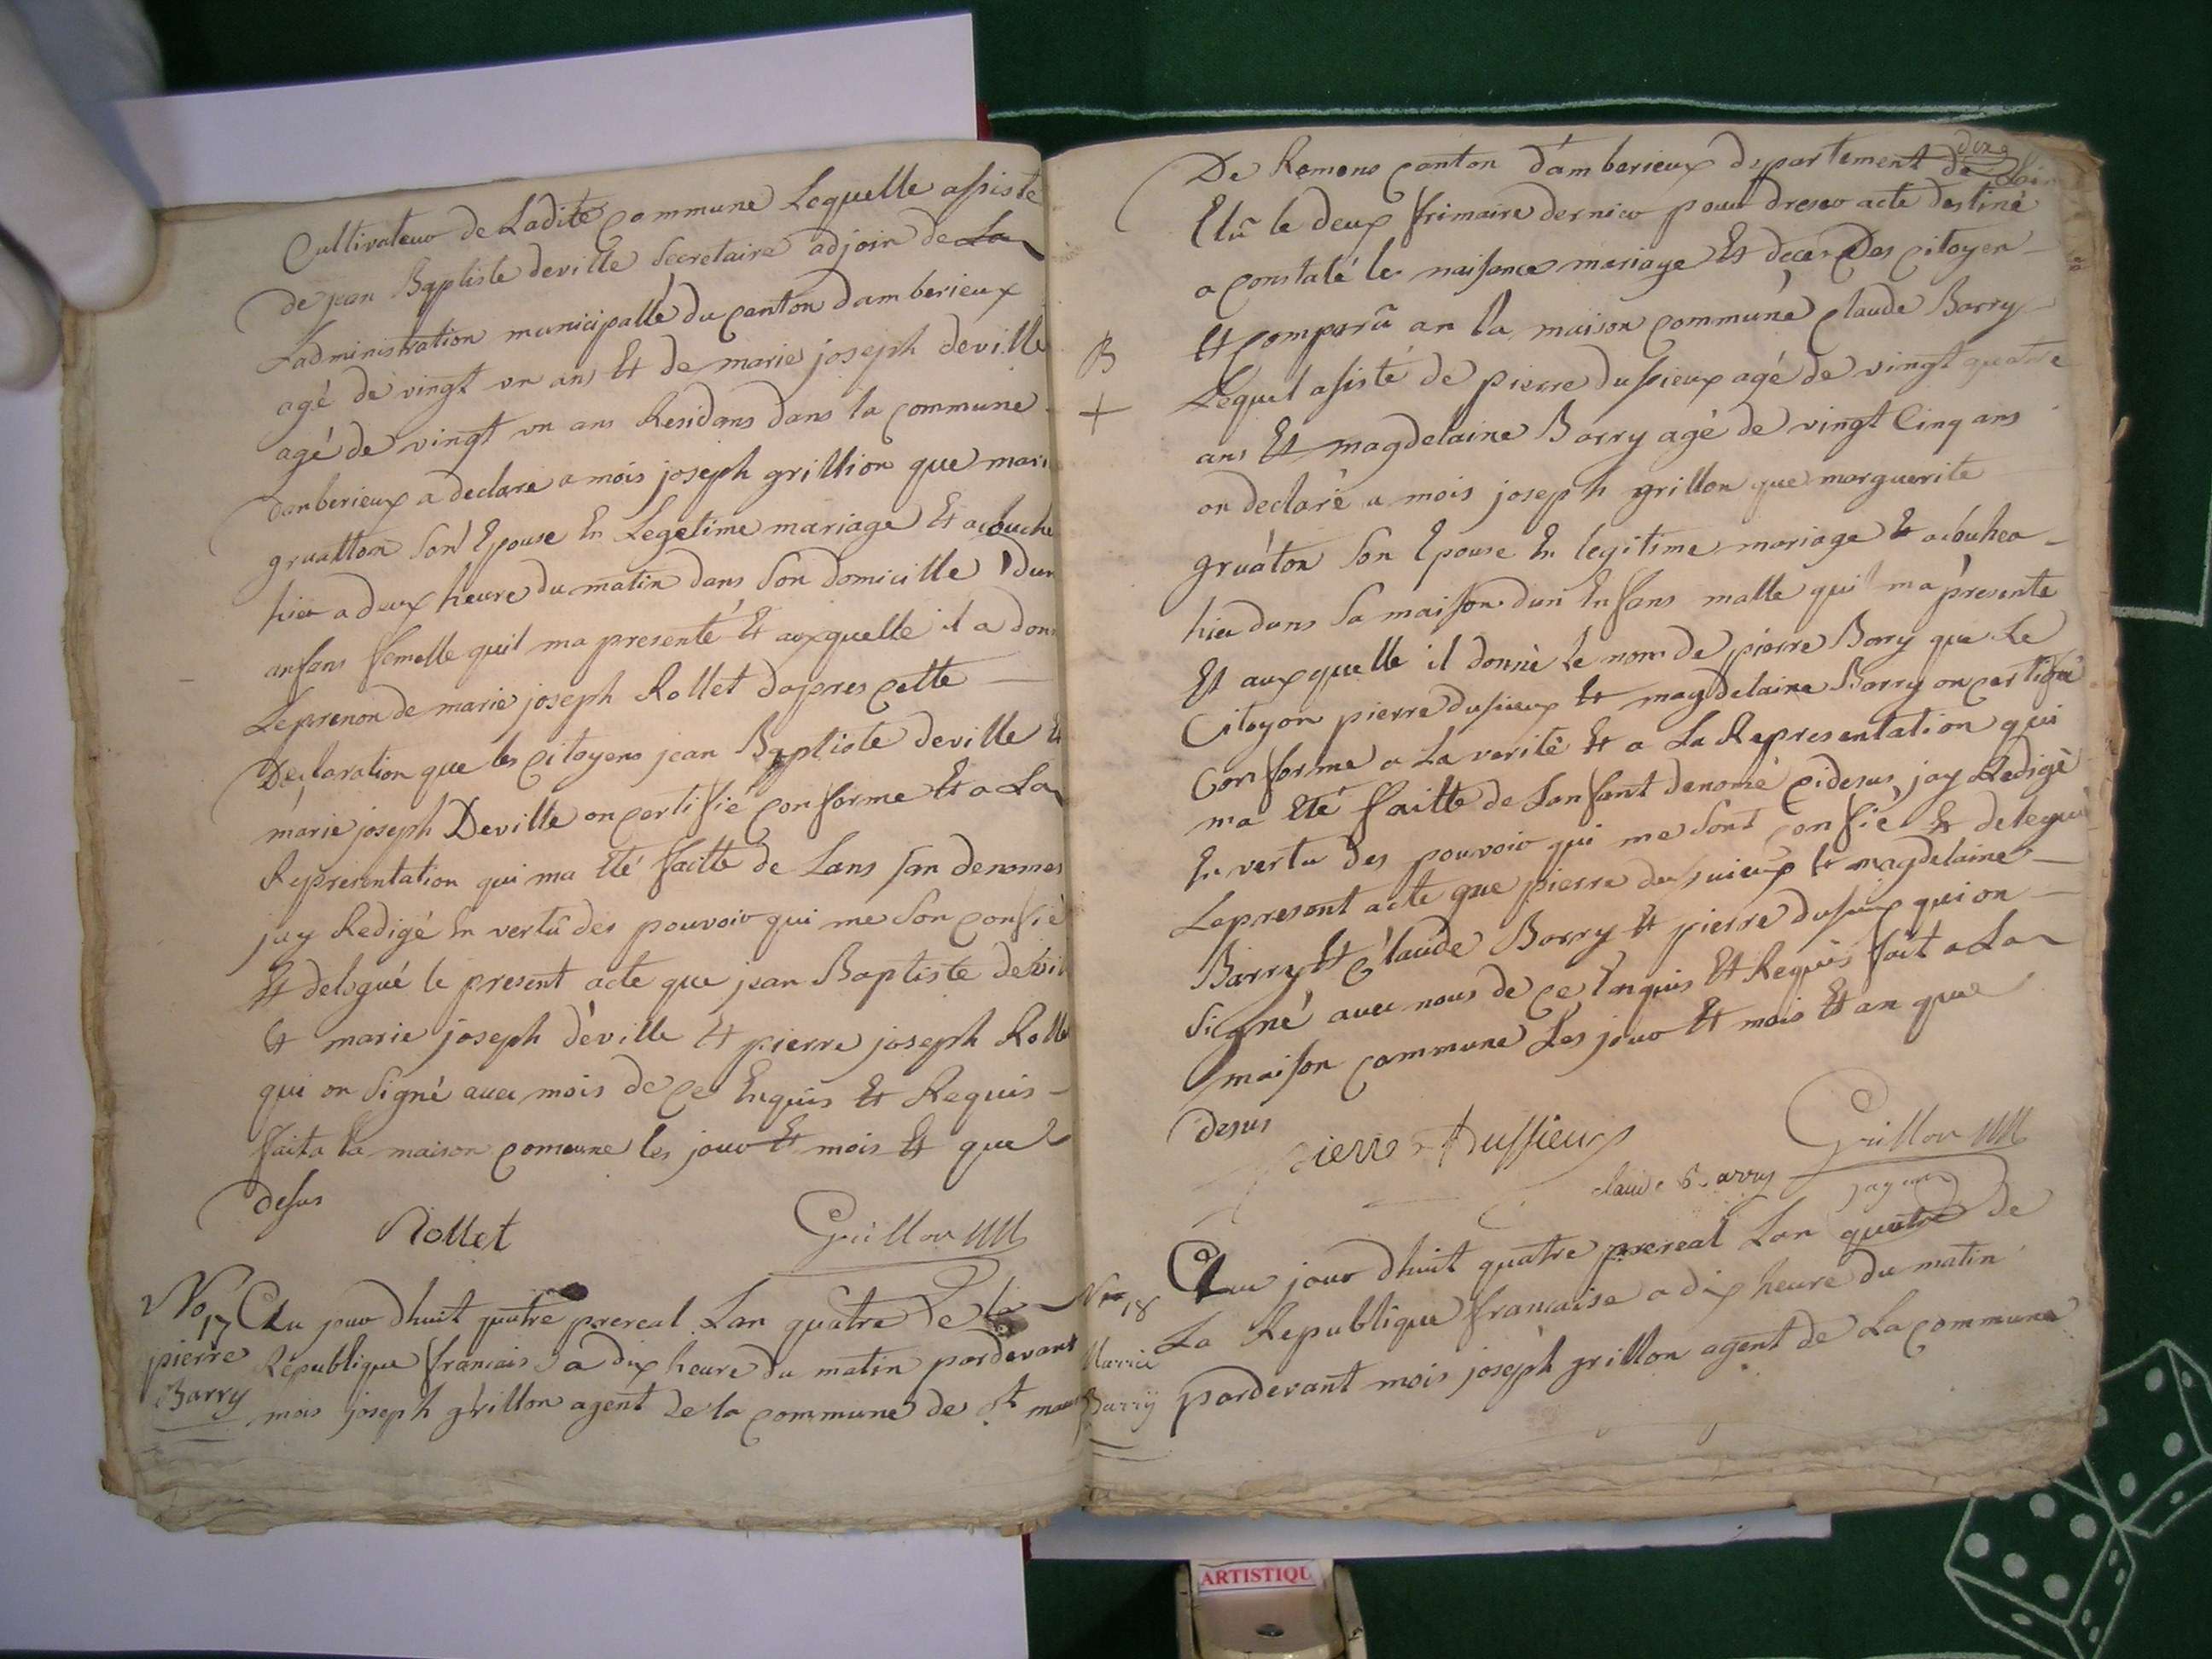 Cultivateur de Ladite commune Lequelle assiste
de jean Baptiste deville Secretaire adjoin de La
Ladministration municipalle du canton damberieux
agé de vingt un ans Et de marie joseph deville
agé de vingt un ans Residans dans la commune
damberieux a declare a mois joseph grillion que mari
gruatton Son Epouse En Legetime mariage Et acouche
hier a deux heure du matin dans Son domicille dun
anfans femelle quil ma presenté Et auxquelle il a donn
Le prenon de marie joseph Rollet dapres cette
Declaration que les citoyens jean Baptiste deville Et
marie joseph Deville on certifié conforme Et a La
Representation qui ma Eté faitte de Lans fan denomer
jay Redigé En vertû des pouvoir qui me Son confié
Et delegué le present acte que jean Baptiste devill
Et marie joseph déville Et pierre joseph Rolle
qui on Signé avec mois de ce Enquis Et Requis
fait a la maison comeune les jour Et mois Et que
desus
Rollet
Grillon
No 17
pierre
Barry
Au jour dhuit quatre prereal Lan quatre de la
Republique francais a dix heure du matin pardevant
mois joseph grillon agent de la commune de St mau
dixe
De Remens canton d'amberieux departement de Lain
Elû le deux frimaire dernier pour dreser acte destiné
a constaté les naisance mariage Et deces Des citoyen
Et comparû an la maison commune claude Barry
B
+
Lequel asisté de pierre dussieux agé de vingt quatre
ans Et magdelaine Barry agé de vingt Cinq ans
on declaré a mois joseph grillon que marguerite
gruâton Son Epouse En legitime mariage Et acouhea
hier dans Sa maison dun Enfans malle qui ma présenté
Et auxquelle il donné Le nom de pierre Barry que Le
Citoyon pierre dusieux Et magdelaine Barry on certifié
Conforme a La verité Et a La Representation qui
ma Eté faitte de Lanfant denomé cidesus, jay Redigé
En vertu des pouvoir qui me Sont confié Et delegué
Le present acte que pierre dussuieux Et magdelaine
Barry Et Claude Barry Et pierre dusieux qui on
Signé avec nous de ce Enquis Et Requis fait a La
maison commune Les jour Et mois Et an que
desus
pierre Dussieux
claude Barry
Grillon
agent
No 18
Marrie
Barry
Au jour dhuit quatre prereal Lan quatre de
La Republique francaise a dix heure du matin
pardevant mois joséph grillon agent de La commune
ARTISTIQU